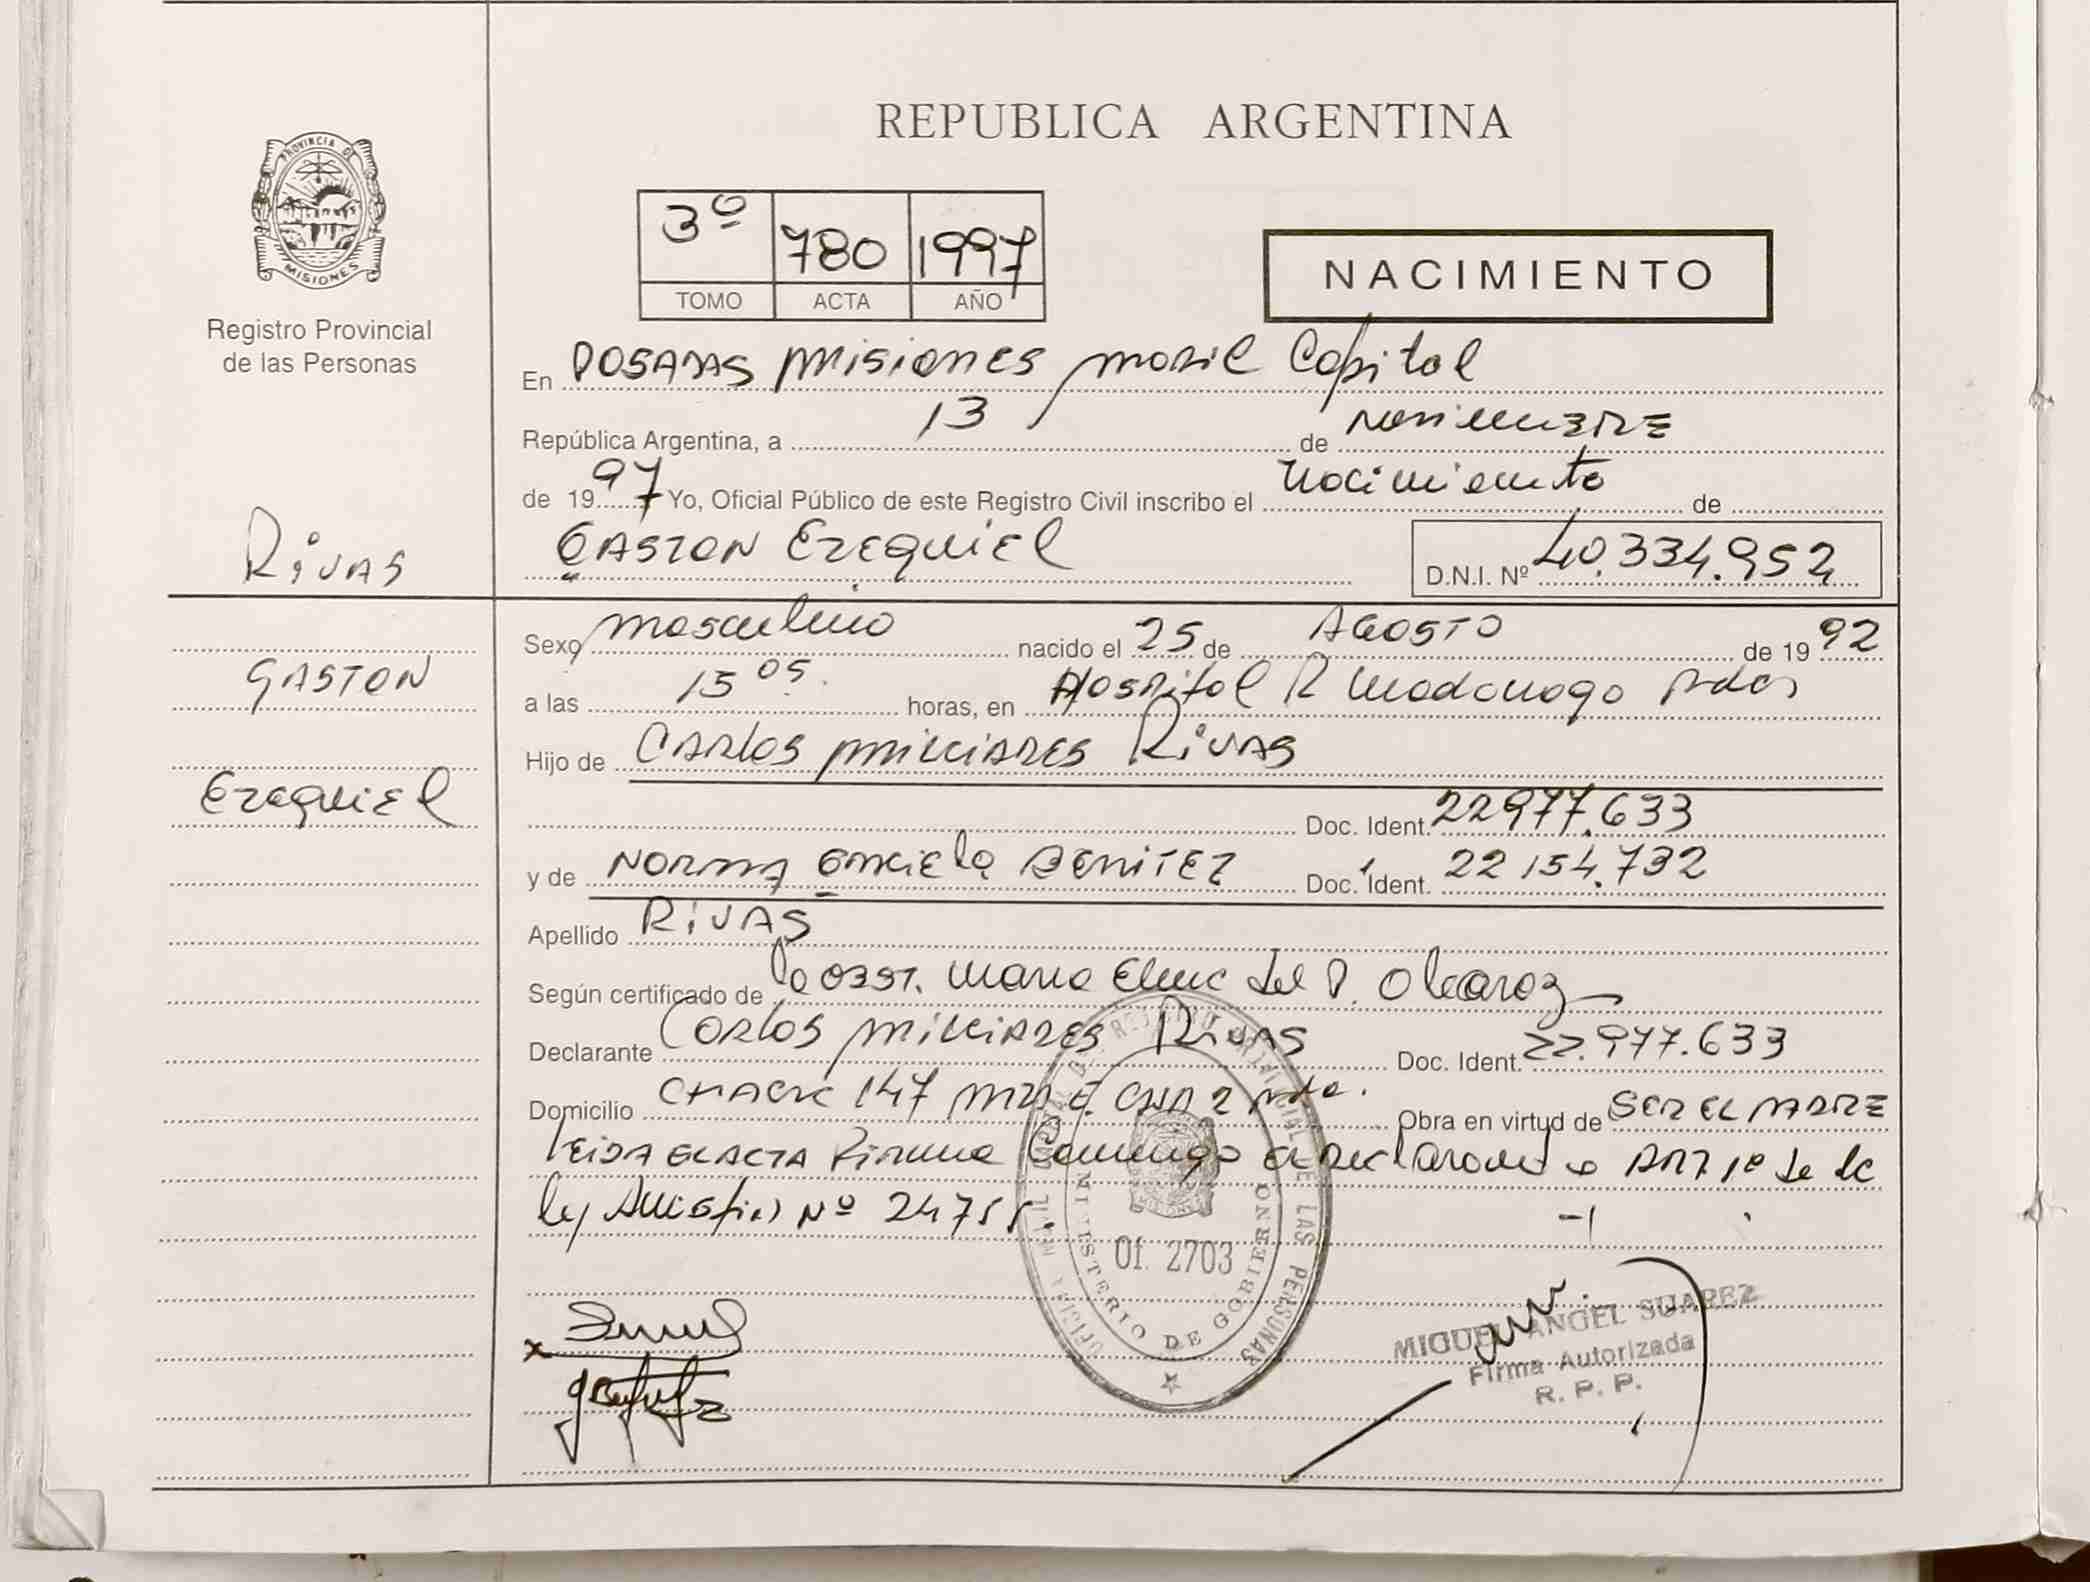 REPUBLICA ARGENTINA
PROVINCIA DE
MISIONES
Registro Provincial
de las Personas
3º 780 1997
TOMO ACTA AÑO
NACIMIENTO
En POSADAS MISIONES Movil Capital
República Argentina, a 13 de NOVIEMBRE
de 1997 Yo, Oficial Público de este Registro Civil inscribo el Nacimiento de
RIVAS
GASTON EZEQUIEL D.N.I. Nº 40.334.952
Sexo masculino nacido el 25 de AGOSTO de 1992
GASTON
a las 15 05 horas, en Hospital R Madariaga Pdas
Hijo de CARLOS MILCIADES RIVAS
EZEQUIEL
Doc. Ident. 22977.633
y de NORMA GRACIELA BENITEZ Doc. Ident. 22154.732
Apellido RIVAS
Según certificado de la OBST. Maria Elena del P. Alcaraz
Declarante CARLOS MILCIADES RIVAS Doc. Ident. 22.977.633
Domicilio CHACRA 147 CASA 2 Obra en virtud de SER EL PADRE
LEIDA EL ACTA FIRMA Conmigo el Declarante ART 1º de la
ley Nº 24755
OFICIAL DE LAS PERSONAS
MINISTERIO DE GOBIERNO
Of. 2703
MIGUEL ANGEL SUAREZ
Firma Autorizada
R. P. P.